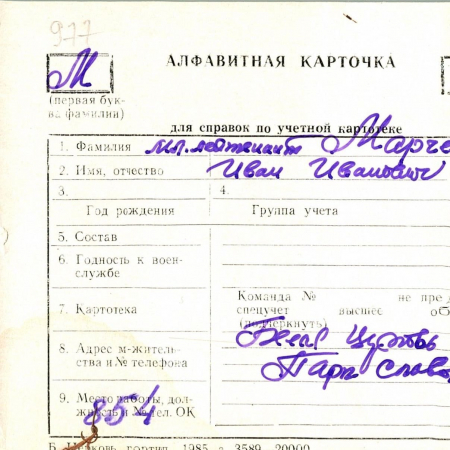 977
М
АЛФАВИТНАЯ КАРТОЧКА
(первая бук-
ва фамилии)
для справок по учетной картотеке
1. Фамилия мл. лейтенант Марче
2. Имя, отчество Иван Иванович
3. 4.
Год рождения Группа учета
5. Состав
6. Годность к воен-
службе
7. Картотека
Команда № не пред
спецучет высшее об
(подчеркнуть)
8. Адрес м-житель-
ства и № телефона
Белая Церковь
Парк Славы
9. Место работы, дол-
жность и № тел. ОК
854
Б Церковь гортип. 1985 з 3589 20000